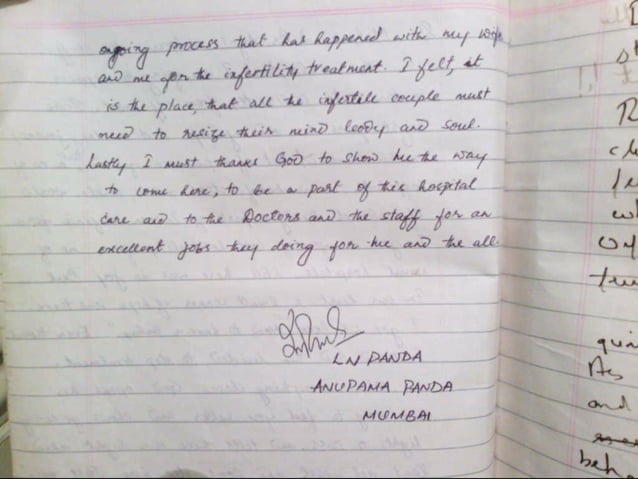 ongoing process that has happened with my wife
and me for the infertility treatment. I felt, it
is the place, that all the infertile couple must
need to resize their mind body and soul.
Lastly I must thanks God to show me the way
to come here, to be a part of this hospital
care and to the Doctors and the staff for an
excellent jobs they doing for me and the all.
LN PANDA
ANUPAMA PANDA
MUMBAI
qui
As
and
beh